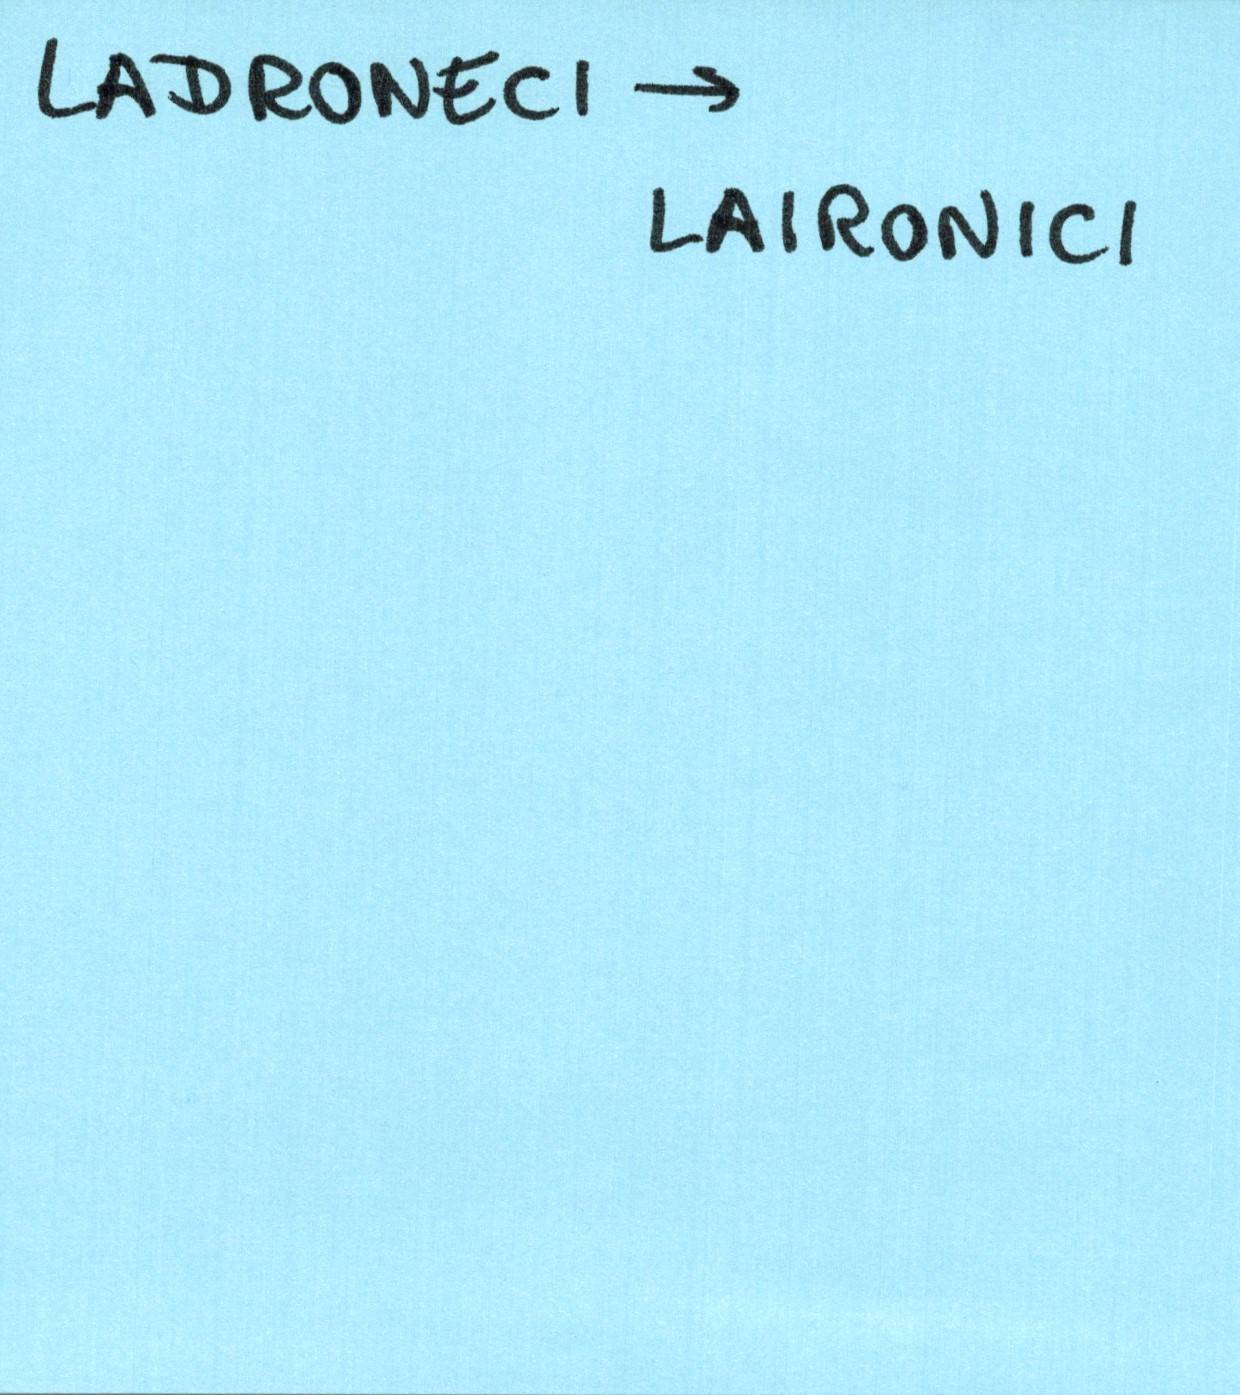 LADRONECI →
LAIRONICI